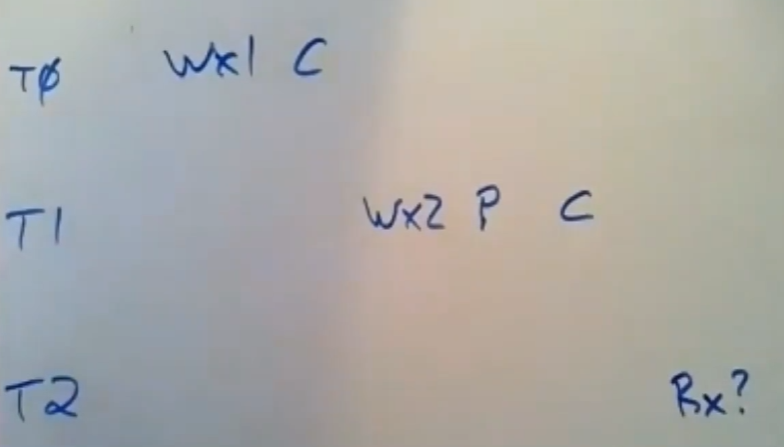 TØ Wx1 C
T1 Wx2 P C
T2 Rx?